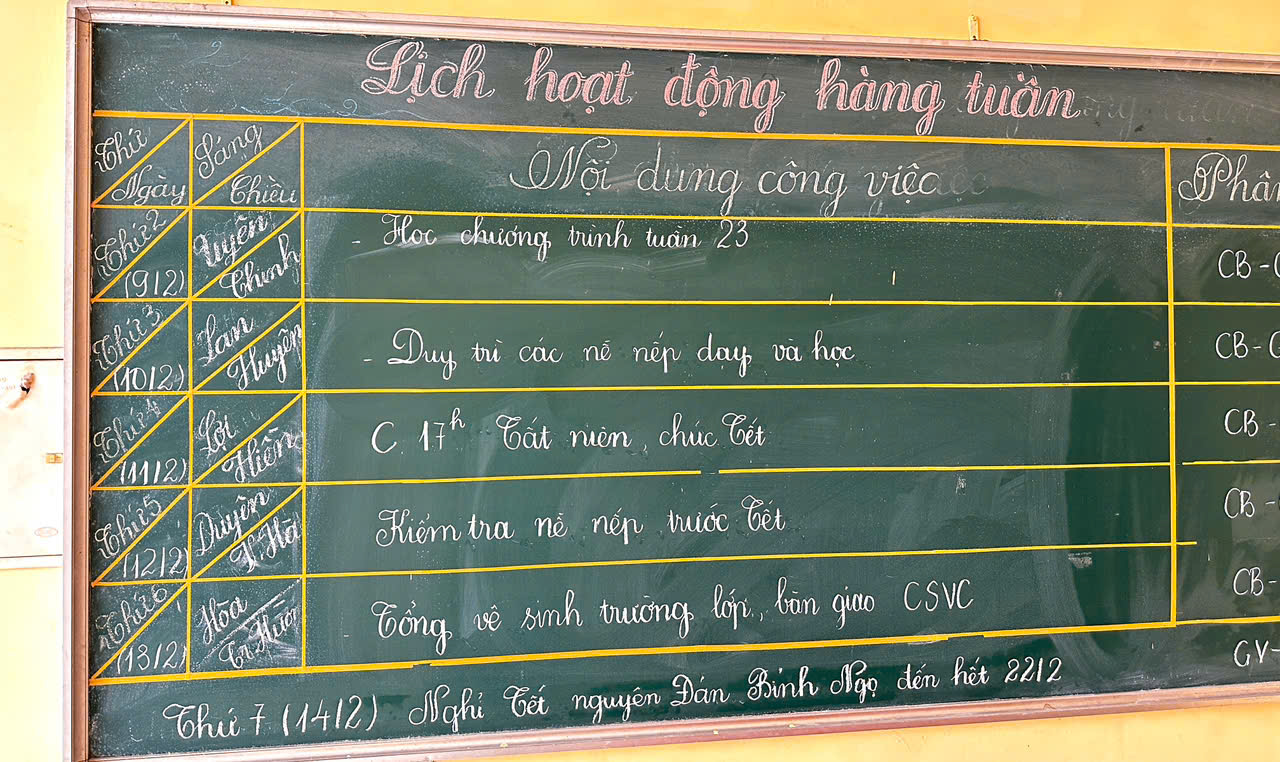 Lịch hoạt động hàng tuần
Thứ Ngày Sáng Chiều Nội dung công việc Phân
Thứ 2 (9/2) Uyên Chinh - Học chương trình tuần 23 CB -
Thứ 3 (10/2) Lan Huyên - Duy trì các nề nếp dạy và học CB -
Thứ 4 (11/2) Lợi Hiền C. 17h Tất niên, chúc Tết CB -
Thứ 5 (12/2) Duyên Kiểm tra nề nếp trước Tết CB -
Thứ 6 (13/2) Hòa Tổng vệ sinh trường lớp, bàn giao CSVC CB -
Thứ 7 (14/2) Nghỉ Tết nguyên Đán Bính Ngọ đến hết 22/2 GV -